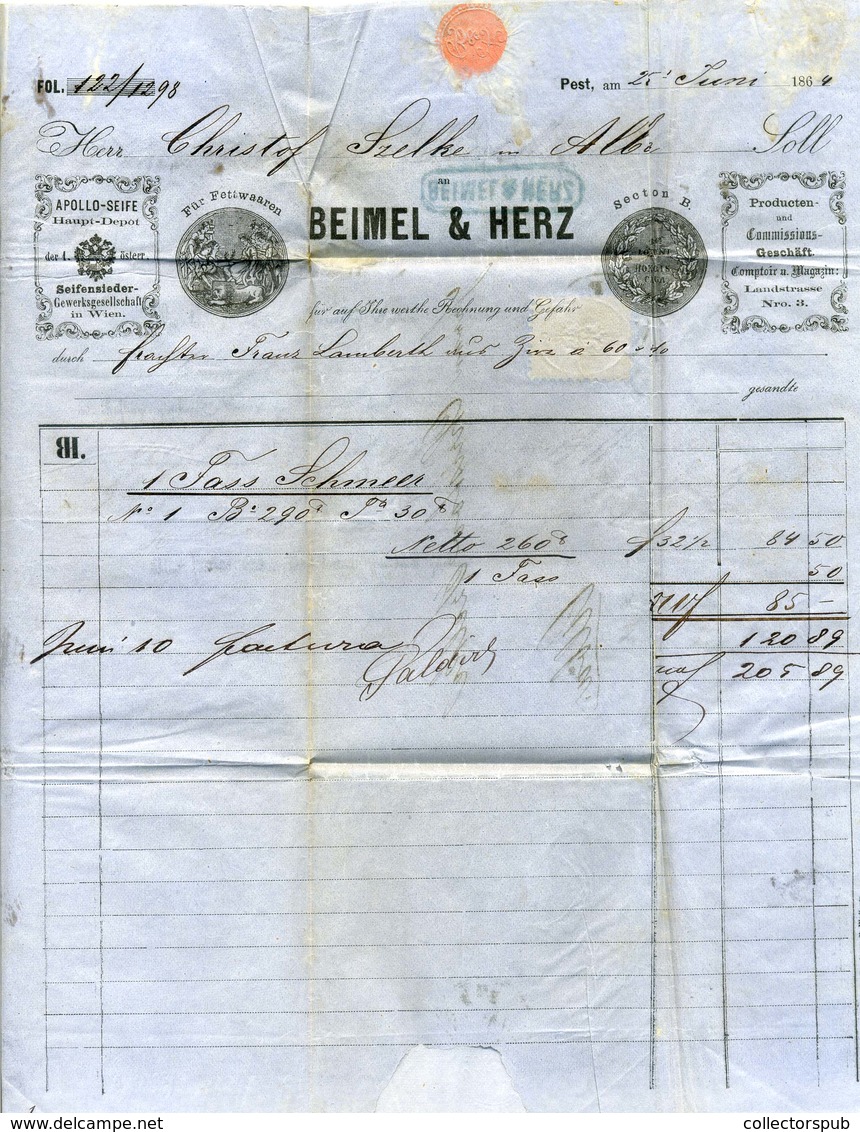 FOL. 122/1298
Pest, am 25t Juni 1864
Herr Christof Szelke in Soll
an
BEIMEL & HERZ
BEIMEL & HERZ
APOLLO-SEIFE
Haupt-Depot
der 1. österr.
Seifensieder-
Gewerksgesellschaft
in Wien.
Für Fettwaaren
Secton B.
Producten-
und
Commissions-
Geschäft.
Comptoir u. Magazin:
Landstrasse
Nro. 3.
für auf Ihre werthe Rechnung und Gefahr
durch Franz Lamberth aus Zirz à 60
gesandte
BH.
1 Fass Schmeer
No 1 Bo 290 Ta 30
Netto 260 f 32 1/2 84 50
1 Fass 50
85 —
Juni 10 factura 120 89
205 89
collectorspub
collectorspub.com